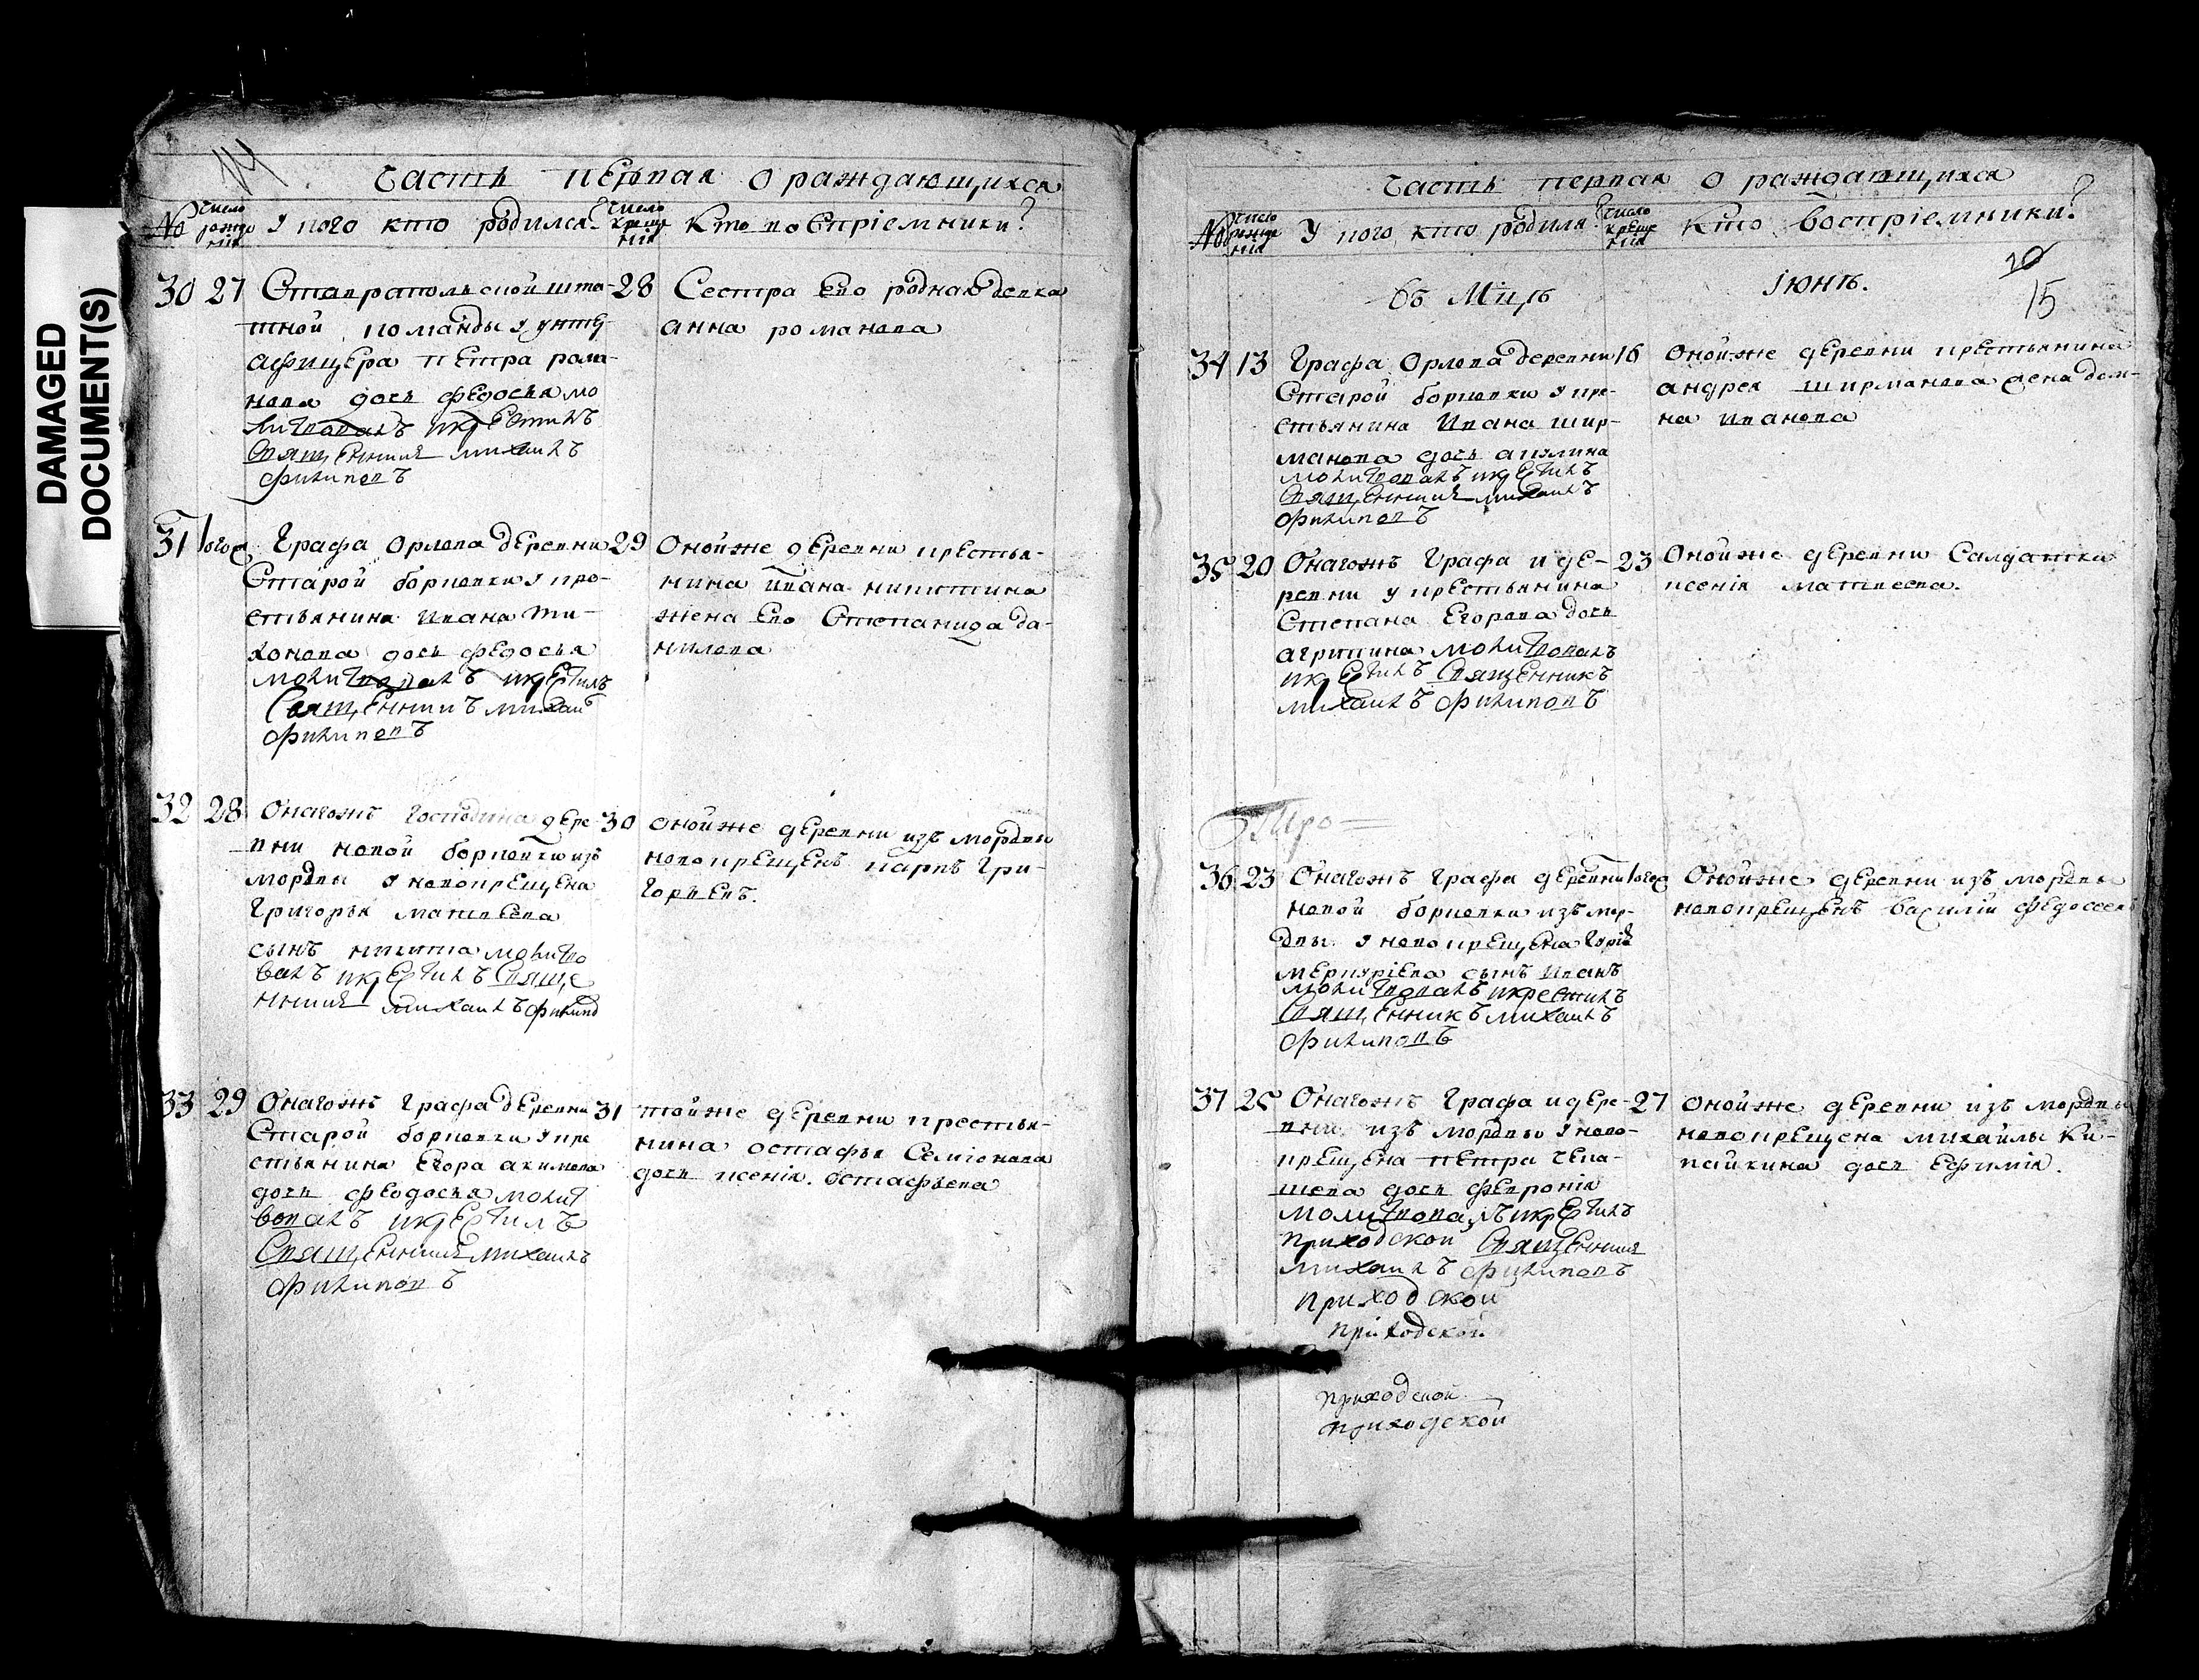 DAMAGED
DOCUMENT(S)
14
Часть первая о раждающихся
№
число
рожде
нія
У ково кто родился?
число
креще
нія
Кто воспріемники?
30 27 Ставрапольской шта-
тной команды у унтер
афицера Петра рома-
нова дочь федосья мо
литвовалъ икрестилъ
Священникъ михаилъ
филиповъ
28 Сестра ево родная девка
анна романова
31 того Графа Орлова деревни
Старой борковки у кре-
стьянина Ивана ти-
хонова дочь федосья
молитвовалъ икрестилъ
Священникъ михаилъ
филиповъ
29 Оной же деревни крестья-
нина Ивана никитина
жена ево Степанида да-
нилова
32 28 Онагожъ господина дере-
вни новой борковки изъ
мордвы у новокрещена
Григорья матвеева
сынъ никита молитво
валъ икрестилъ Свяще
нникъ михаилъ филипо
30 оной же деревни изъ мордвы
новокрещенъ карпъ Гри-
горьевъ.
33 29 Онагожъ Графа деревни
Старой борковки у кре
стьянина Егора акимова
дочь феодосья молит
вовалъ икрестилъ
Священникъ михаилъ
филиповъ
31 той же деревни крестья-
нина остафья Семіонова
дочь ксенія остафьева
Часть первая о раждающихся
№
число
рожде
нія
У ково кто родился?
число
креще
нія
Кто воспріемники?
въ Мцѣ Іюнѣ.
10
15
34 13 Графа Орлова деревни
Старой борковки у кре-
стьянина Ивана шир-
манова дочь акулина
молитвовалъ икрестилъ
Священникъ михаилъ
филиповъ
16 Оной же деревни крестьянина
андрея ширманова жена дом-
на иванова
35 20 Онагожъ Графа и де-
ревни у крестьянина
Степана Егорова дочь
агрипина молитвовалъ
икрестилъ Священникъ
михаилъ филиповъ
23 Оной же деревни Салдатка
ксенія матвеева.
36 23 Онагожъ графа деревни
новой борковки изъ мор-
двы у новокрещена
меркуріева сынъ Иванъ
молитвовалъ икрестилъ
Священникъ михаилъ
филиповъ
того Оной же деревни изъ мордвы
новокрещенъ Василій федосеевъ
37 25 Онагожъ Графа и дере-
вни изъ мордвы у ново-
крещена петра
дочь февронія
молитвовалъ икрестилъ
приходской Священникъ
михаилъ филиповъ
приходской
приходской
приходской
приходской
27 оной же деревни изъ мордвы
новокрещена михаилы Ки-
пайкина дочь Ефимія.